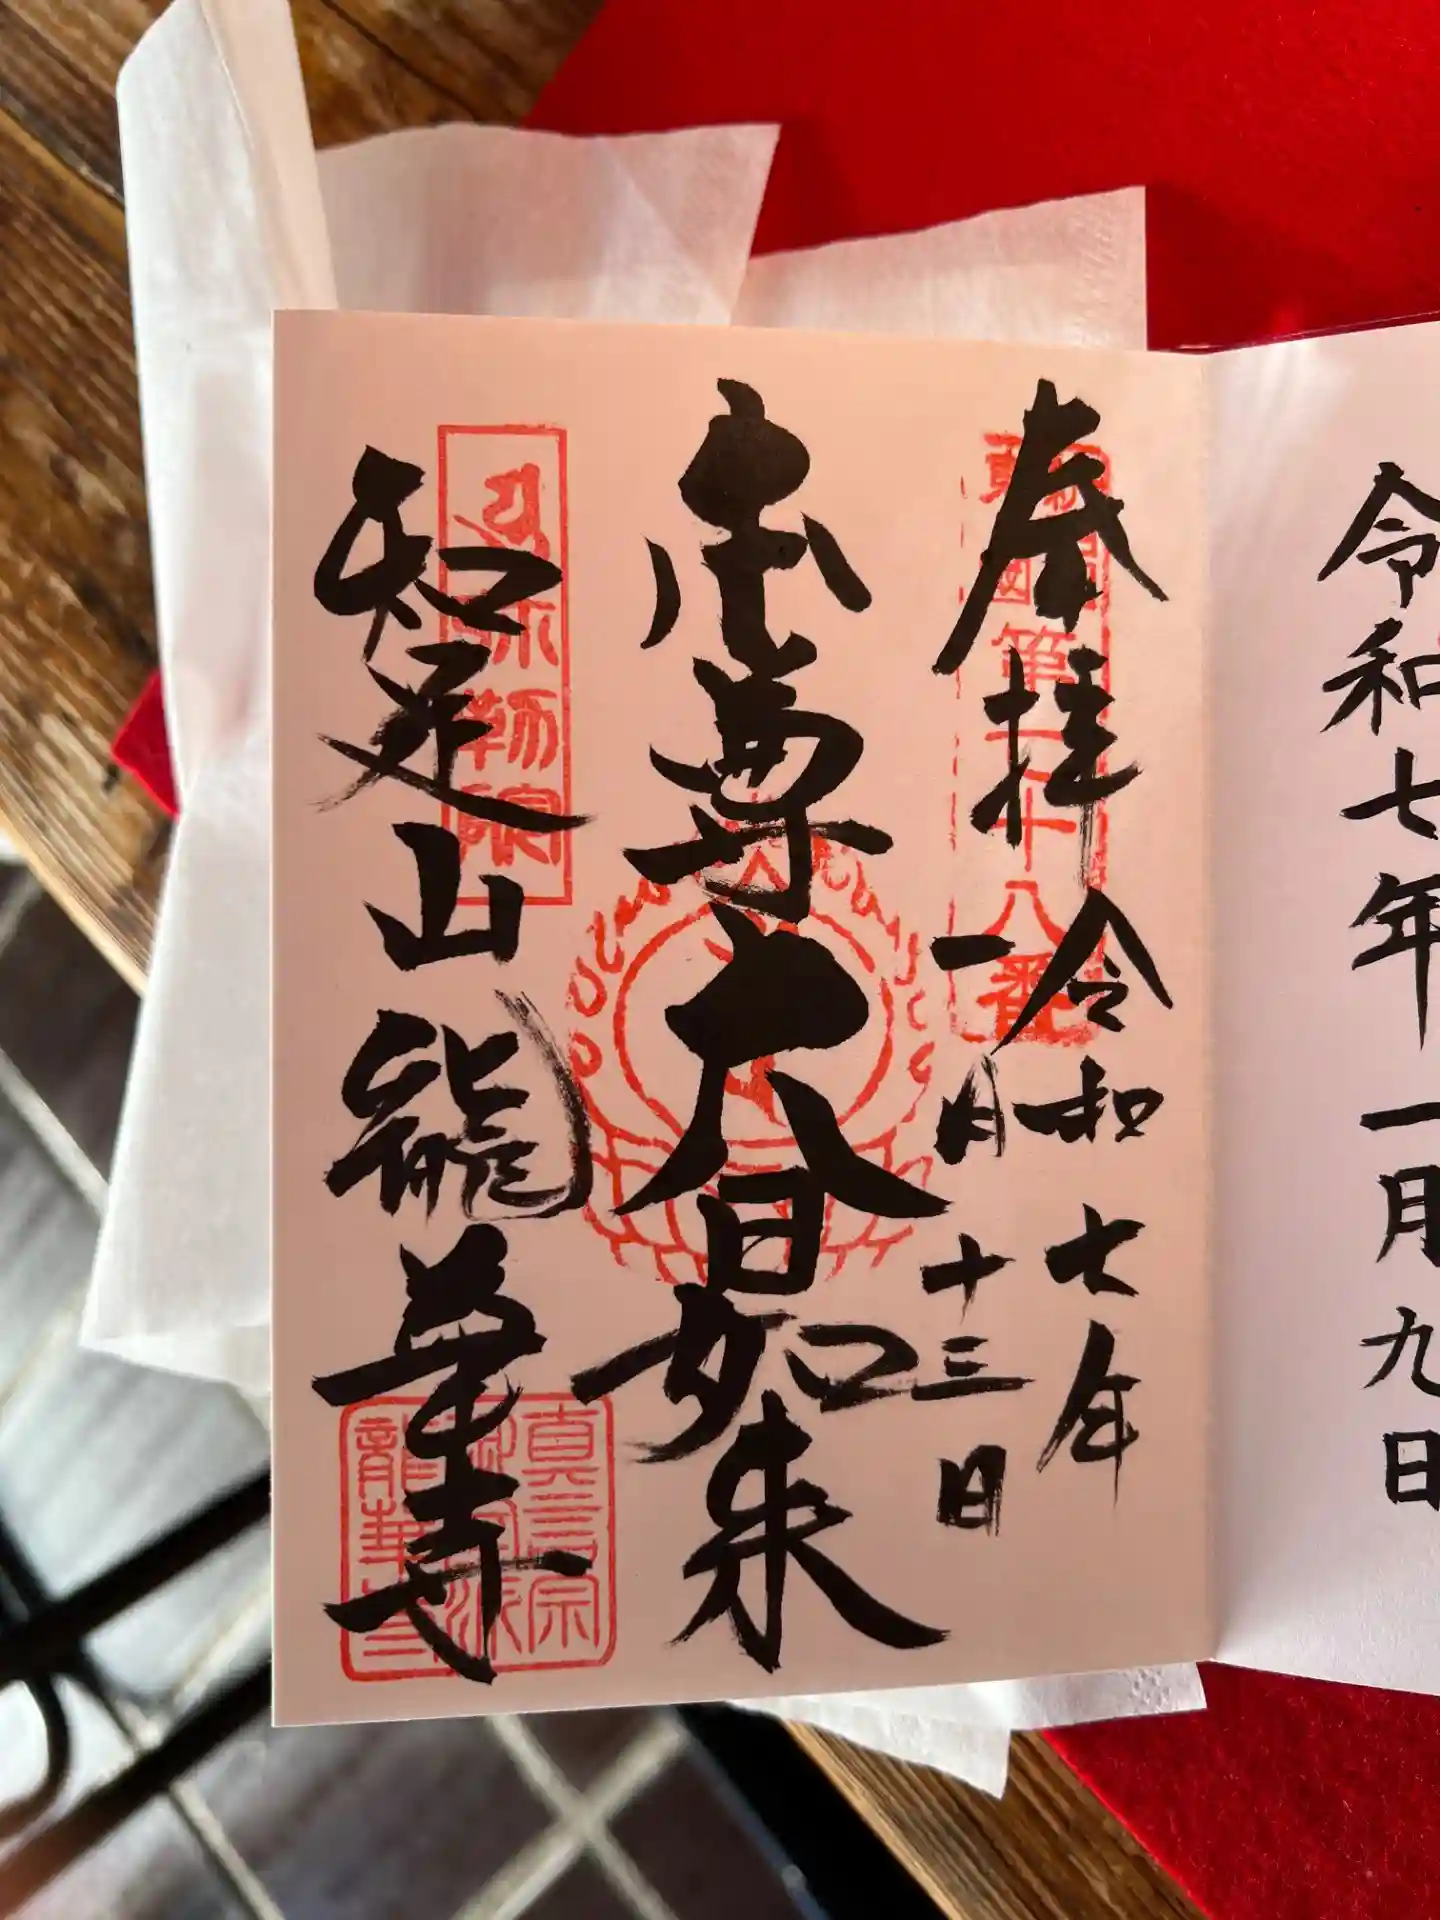 令和七年一月九日
奉拝 令和七年
一月十三日
第二十八番
本尊大日如来
知足山龍華寺
弥勒院
真言宗
御室派
龍華寺